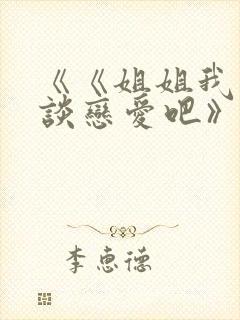 《《姐姐我
談戀愛吧》
李惠德